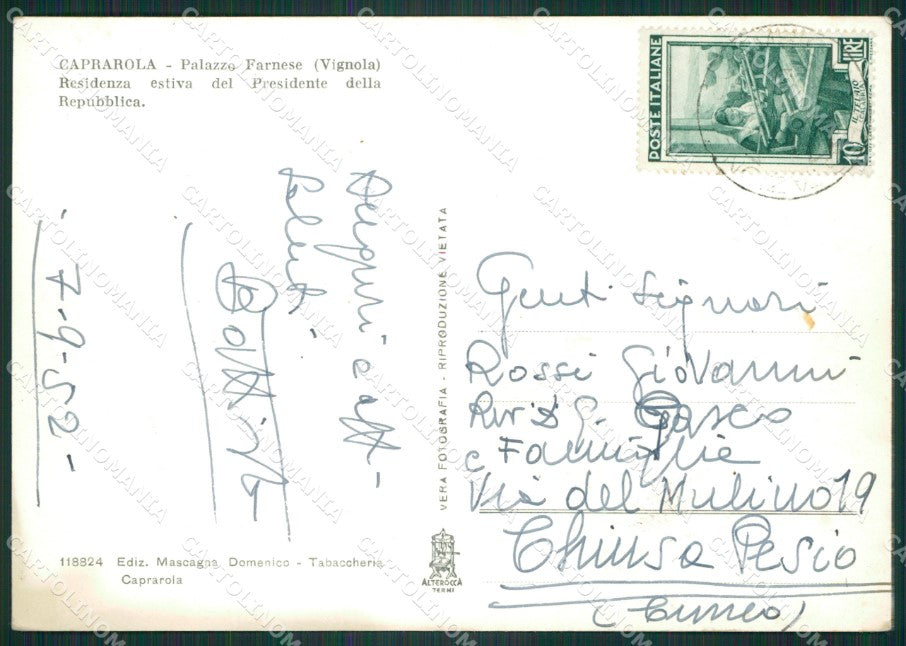 CAPRAROLA - Palazzo Farnese (Vignola)
Residenza estiva del Presidente della
Repubblica.
POSTE ITALIANE
LIRE
10
IL TELAIO
CALABRIA
Auguri e aff-
saluti
- 7-9-52 -
VERA FOTOGRAFIA - RIPRODUZIONE VIETATA
Gent. Signori
Rossi Giovanni
G. Gasco
e Famiglie
Via del Mulino 19
Chiusa Pesio
(Cuneo)
118824 Ediz. Mascagna Domenico - Tabaccheria
Caprarola
ALTEROCCA
TERNI
CARTOLINOMANIA